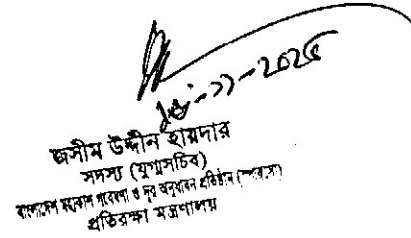 -১১-২০২৫
জসীম উদ্দীন হায়দার
সদস্য (যুগ্মসচিব)
বাংলাদেশ মহাকাশ গবেষণা ও দূর অনুধাবন প্রতিষ্ঠান (স্পারসো)
প্রতিরক্ষা মন্ত্রণালয়